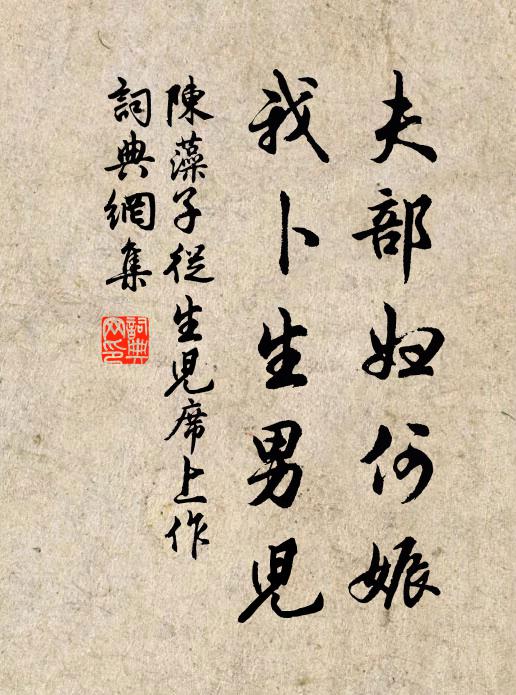 夫部妇何娠
我卜生男児
陳藻子從生児席上作
詞典網集
詞典網印